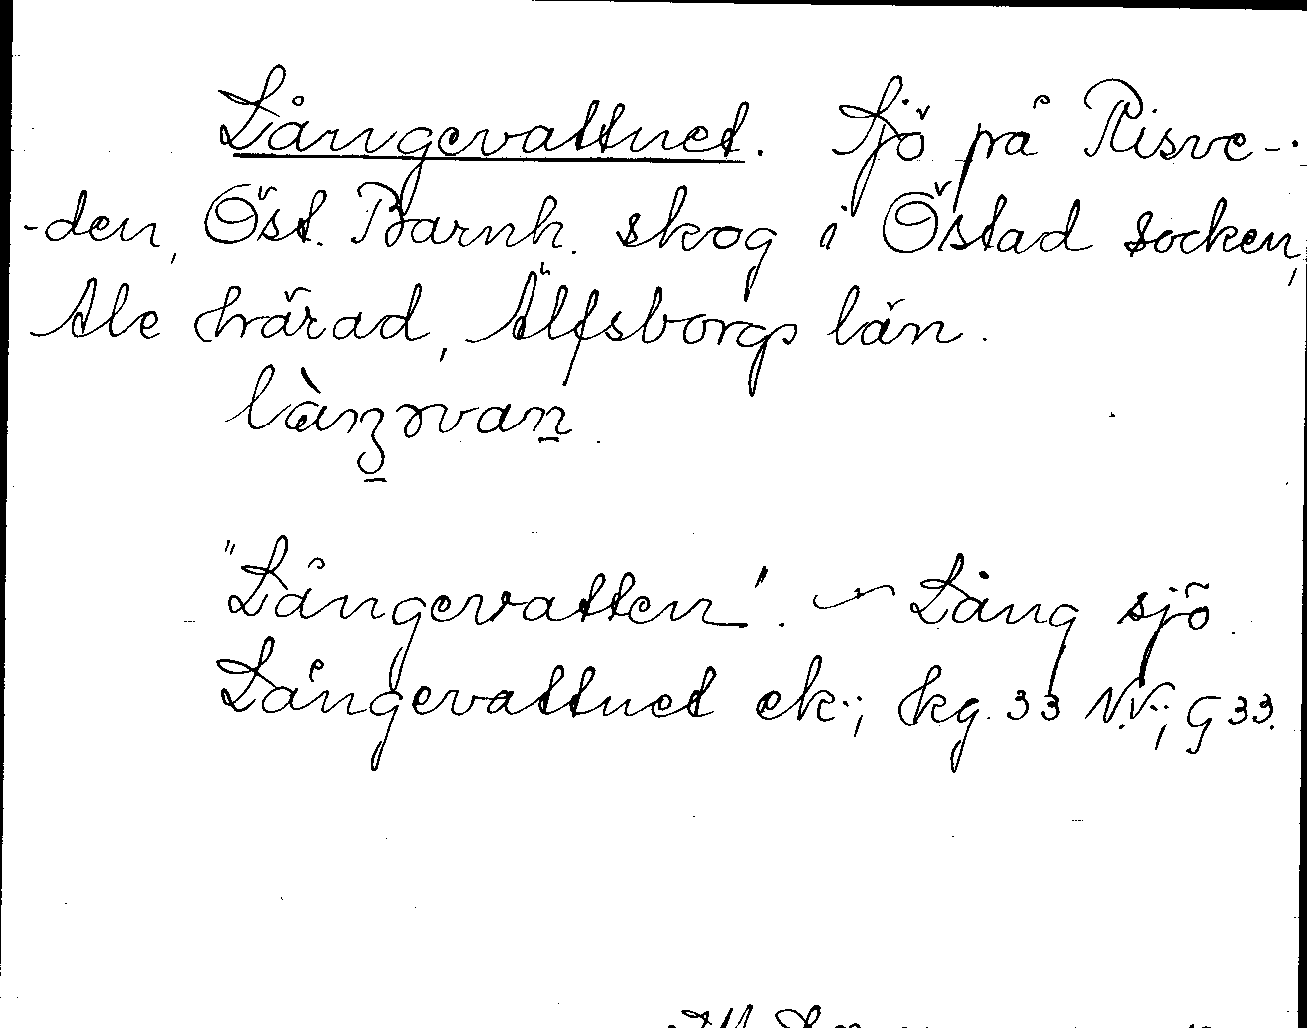 Långevattnet. Sjö på Risve-
-den, Öst. Barnh. skog i Östad socken,
Ale härad, Älfsborgs län.
"Långevatten". Lång sjö.
Långevattnet ek.; kg. 33 N.V.; G 33.